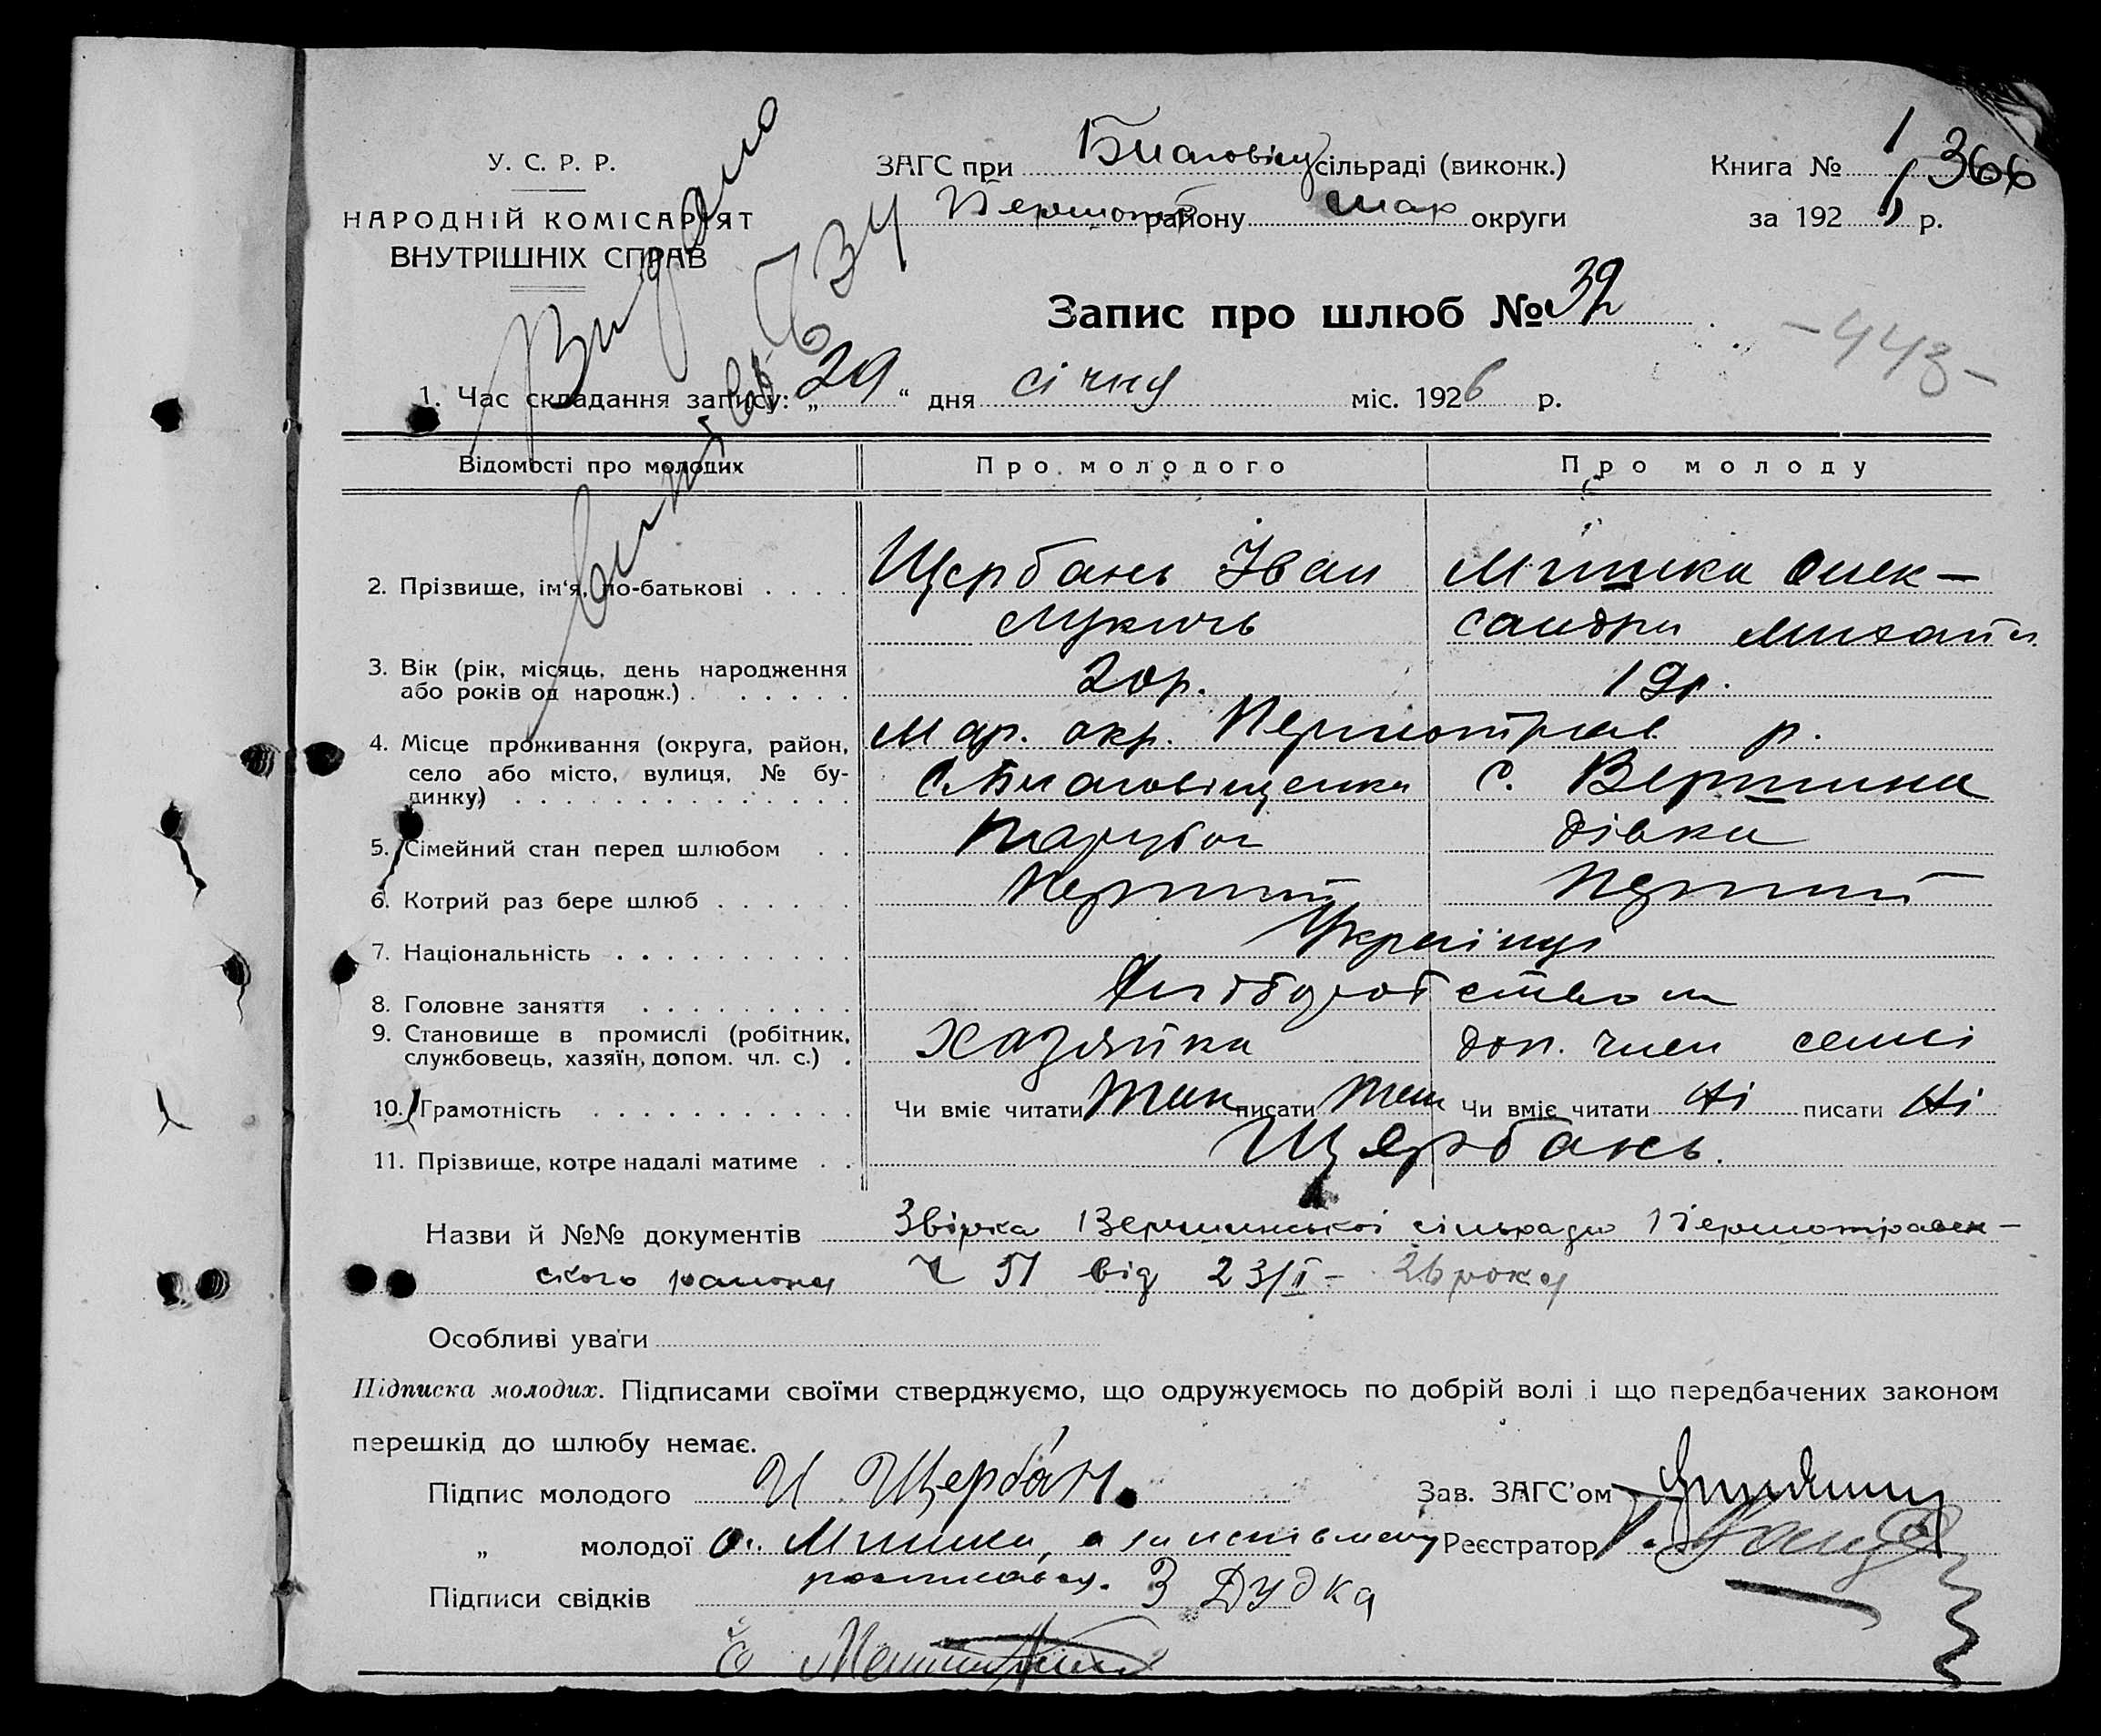 У. С. Р. Р.
НАРОДНІЙ КОМІСАРІЯТ
ВНУТРІШНІХ СПРАВ
Видано
витяг
634
ЗАГС при Благовіщ сільраді (виконк.)
Першотр району Мар округи
Книга № 1 366
за 192 р.
Запис про шлюб № 32
-443-
1. Час складання запису: „29“ дня січня міс. 1926 р.
Відомості про молодих Про молодого Про молоду
2. Прізвище, ім'я, по-батькові . . . . Щербань Іван Мішка Олек-
Лукичь сандра Михайл.
3. Вік (рік, місяць, день народження
або років од народж.) . . . . . . 20р. 19р.
4. Місце проживання (округа, район, Мар. окр. Першотрав р.
село або місто, вулиця, № бу- с. Благовіщенка с. Вершина
динку) . . . . . . . . . . . . . .
5. Сімейний стан перед шлюбом . . Парубок дівка
6. Котрий раз бере шлюб . . . . . . Перший Перший
7. Національність . . . . . . . . . . Українці
8. Головне заняття . . . . . . . . . Хліборобством
9. Становище в промислі (робітник, Хазяйка доп. член семі
службовець, хазяїн, допом. чл. с.) .
10. Грамотність . . . . . . . . . . . Чи вміє читати Так писати Так Чи вміє читати Ні писати Ні
11. Прізвище, котре надалі матиме . . Щербань.
Назви й №№ документів Звірка Вершинської сільради Першотравен-
ського району Ч 51 від 23/I - 26 року
Особливі уваги
Підписка молодих. Підписами своїми стверджуємо, що одружуємось по добрій волі і що передбачених законом
перешкід до шлюбу немає.
Підпис молодого И Щербан. Зав. ЗАГС'ом
„ молодої О. Мішка, а Реєстратор
росписався. З Дудка
Підписи свідків